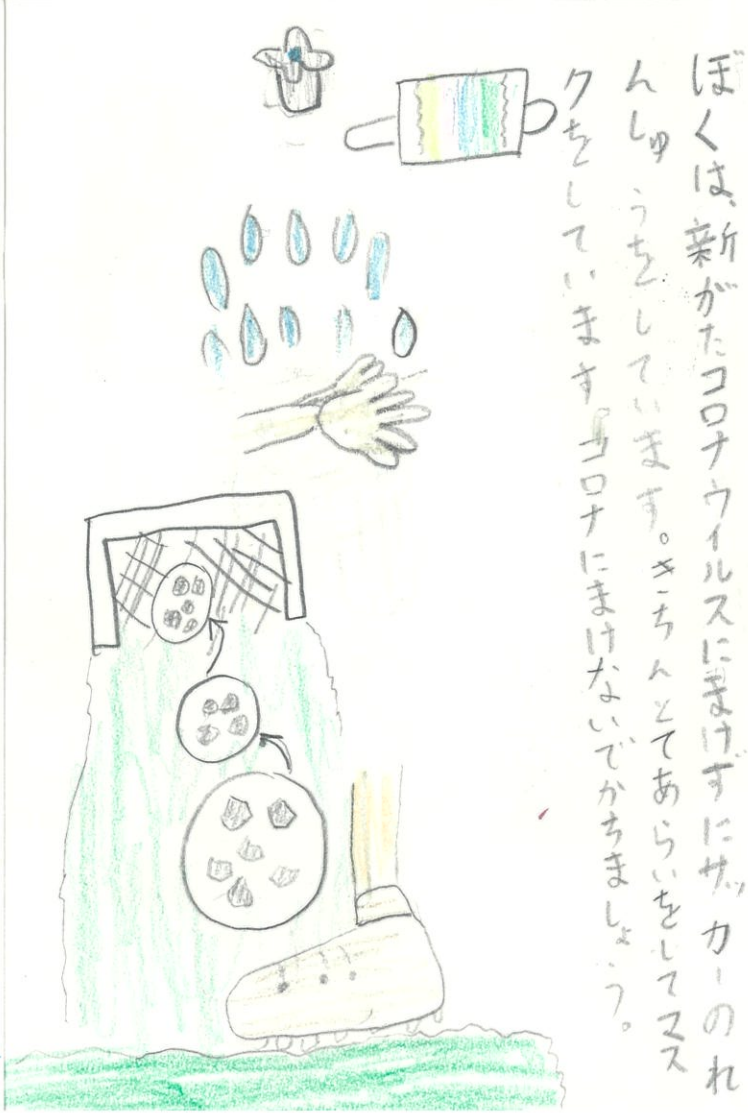 ぼくは、新がたコロナウィルスにまけずにサッカーのれ
んしゅうをしています。きちんとてあらいをしてマス
クをしています。コロナにまけないでかちましょう。